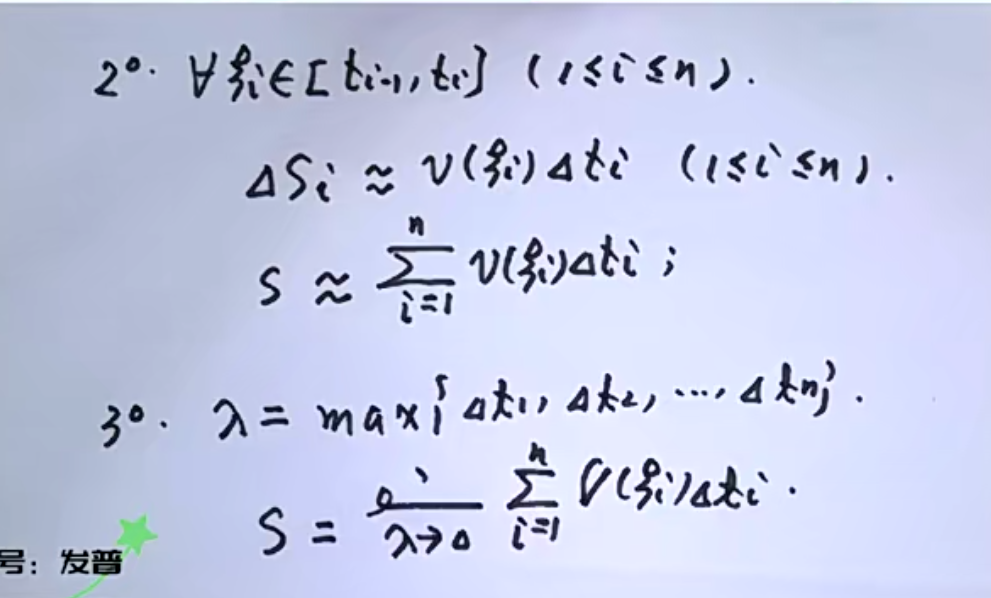 2°. ∀ξi∈[ti-1, ti] (1≤i≤n).
ΔSi ≈ v(ξi)Δti (1≤i≤n).
S ≈ ∑_{i=1}^{n} v(ξi)Δti ;
3°. λ = max{Δt1, Δt2, ..., Δtn}.
S = lim_{λ→0} ∑_{i=1}^{n} v(ξi)Δti.
号：发普